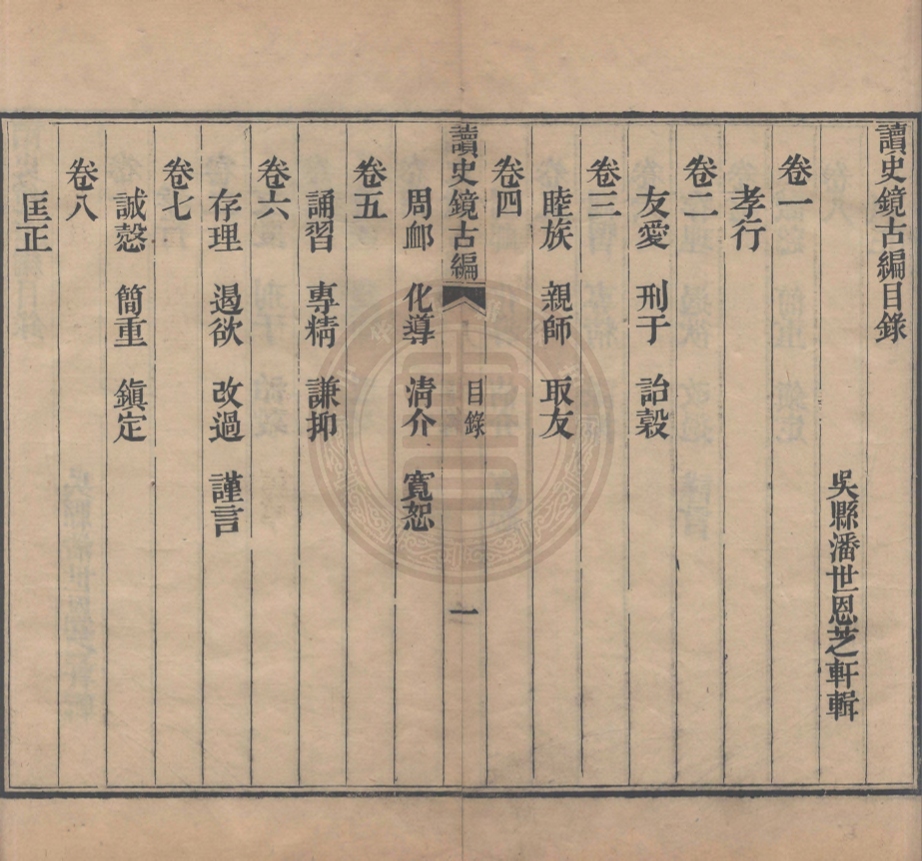 讀史鏡古編目錄
吳縣潘世恩芝軒輯
卷一
孝行
卷二
友愛 刑于 詒穀
卷三
睦族 親師 取友
卷四
讀史鏡古編 目錄 一
周䘏 化導 清介 寬恕
卷五
誦習 專精 謙抑
卷六
存理 遏欲 改過 謹言
卷七
誠慤 簡重 鎭定
卷八
匡正